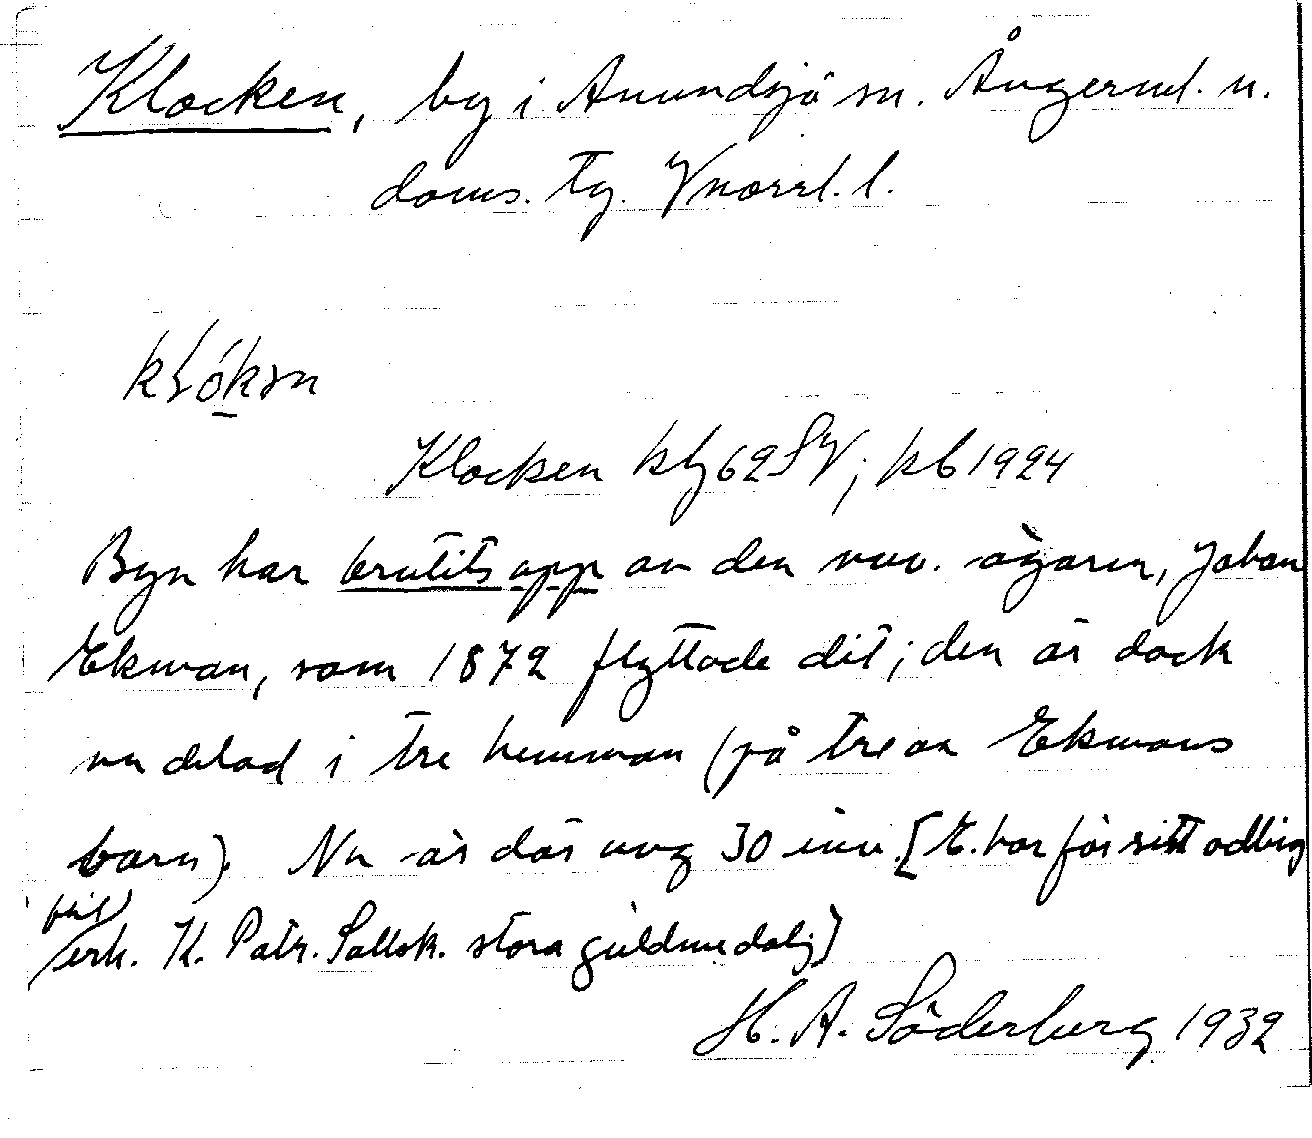 Klocken, by i Anundsjö sn. Ångerml. n.
doms. tg. Vnorrl. l.
Klocken kbl 62 SV; kb 1924
Byn har brutits upp av den nuv. ägaren, Johan
Ekman, som 1872 flyttade dit; den är dock
nu delad i tre hemman (på tre av Ekmans
barn). Nu är där omg 30 inv. [E. har för sitt odling
flit erh. K. Patr. Sällsk. stora guldmedalj]
H. A. Söderberg 1932